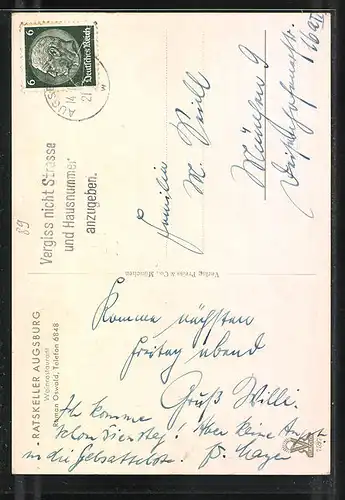 6 Deutsches Reich 6
AUGSB
14.
21
w
Vergiss nicht Strasse
und Hausnummer
anzugeben.
89
Familie
M.
München 9
RATSKELLER AUGSBURG
Weinrestaurant
Oswald, Telefon 6848
Verlag Preiss & Co., München
Komme nächsten
Freitag abend
Gruß Willi.
Ich komme
schon Dienstag! Aber keine Angst
in die